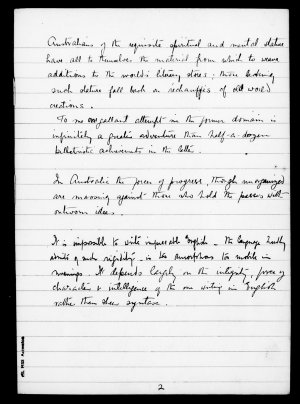 Australians of the requisite spiritual and mental stature
have all to themselves the material from which to weave
additions to the world's literary stores: those lacking
such stature fall back on réchauffés of old world
creations.
To me one gallant attempt in the former domain is
infinitely a greater adventure than half-a-dozen
achievements in the latter.
In Australia the forces of progress, though unorganized
are massing against those who hold the passes with
outworn ideas.
It is impossible to write impeccable English - the language hardly
admits of such rigidity - is too amorphous too mobile in
meanings. It depends largely on the integrity, force of
character & intelligence of the one writing in English
rather than sheer syntax.
2